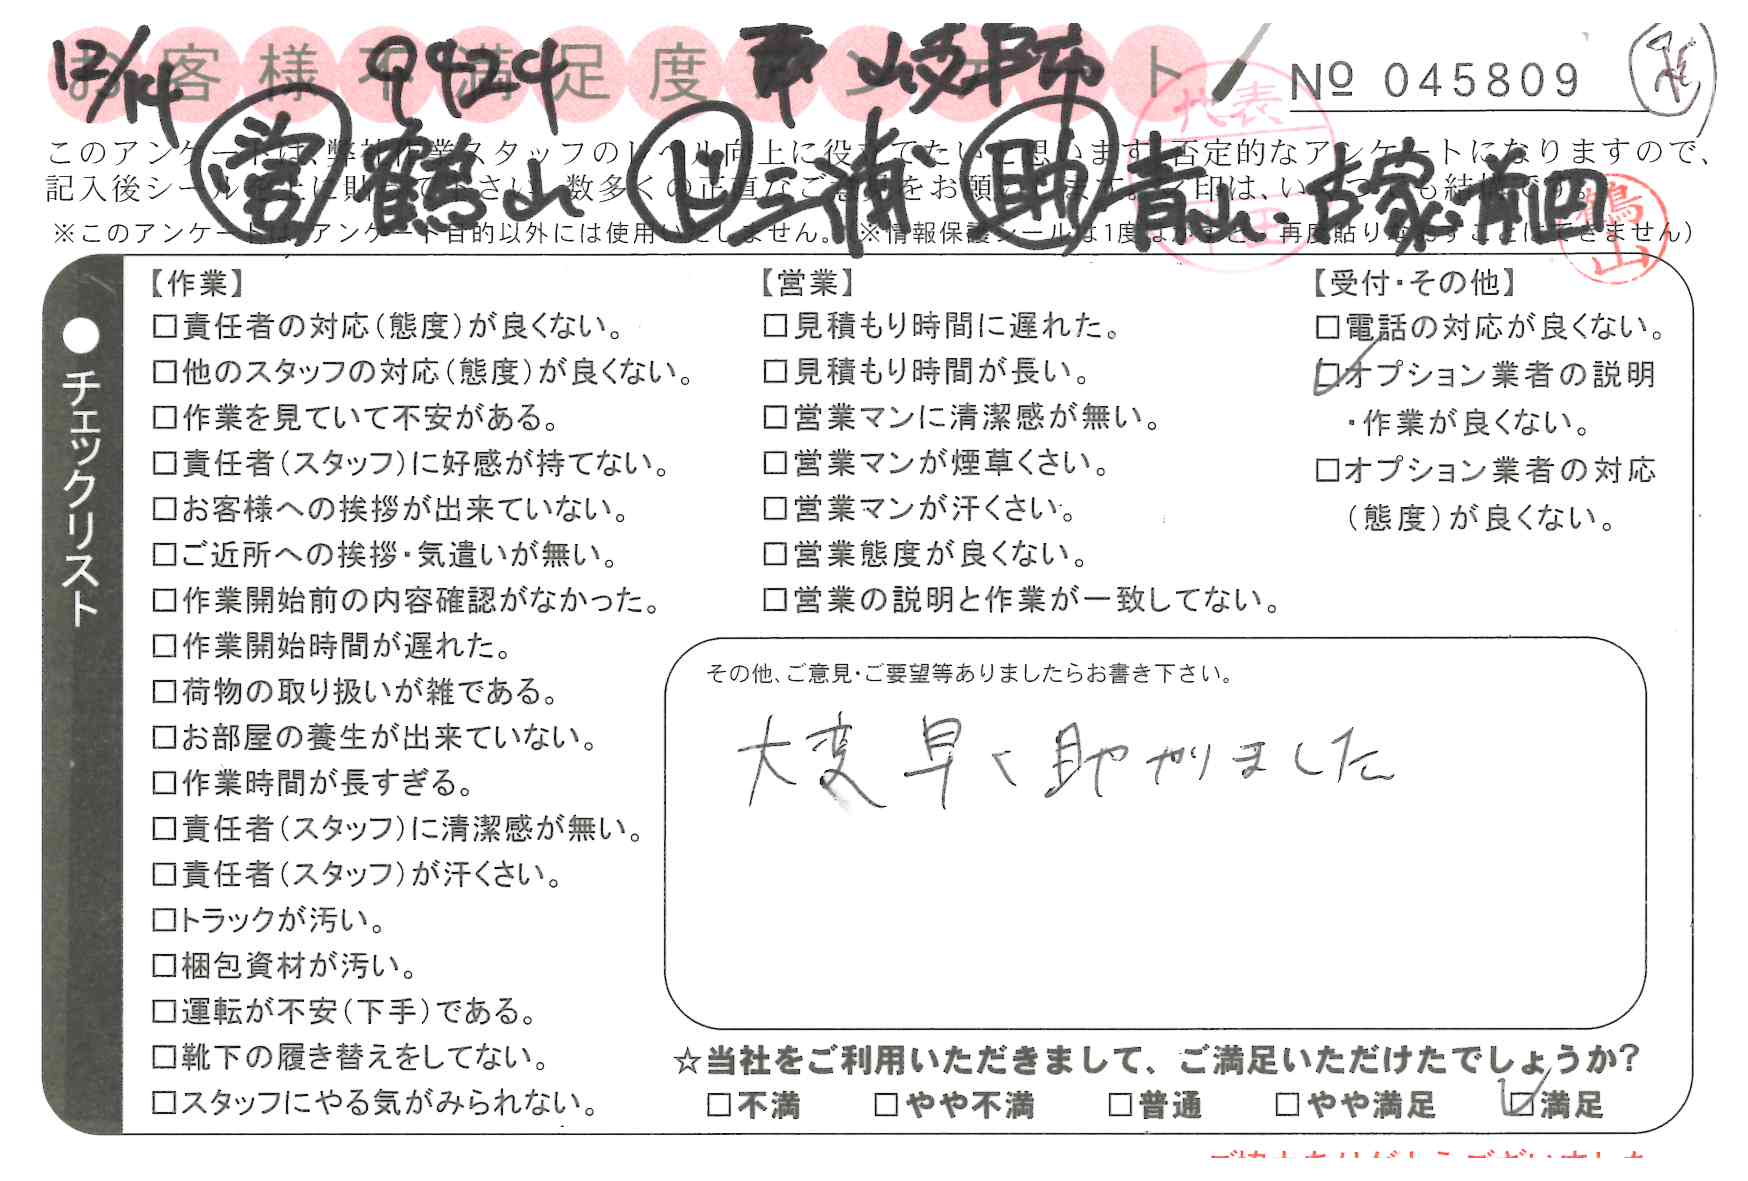 お客様不満足度アンケート
12/14 9424
№ 045809
このアンケートは、弊社作業スタッフのレベル向上に役立てたいと思います。否定的なアンケートになりますので、
記入後シールを上に貼って下さい。数多くの正直なご意見をお願いします。
営 鶴山 ド 三浦 助 青山・古家・前田
代表
鶴山
※このアンケートは、アンケート目的以外には使用いたしません。(※情報保護シールは1度はがすと、再度貼りなおすことはできません)
●チェックリスト
【作業】
□責任者の対応(態度)が良くない。
□他のスタッフの対応(態度)が良くない。
□作業を見ていて不安がある。
□責任者(スタッフ)に好感が持てない。
□お客様への挨拶が出来ていない。
□ご近所への挨拶・気遣いが無い。
□作業開始前の内容確認がなかった。
□作業開始時間が遅れた。
□荷物の取り扱いが雑である。
□お部屋の養生が出来ていない。
□作業時間が長すぎる。
□責任者(スタッフ)に清潔感が無い。
□責任者(スタッフ)が汗くさい。
□トラックが汚い。
□梱包資材が汚い。
□運転が不安(下手)である。
□靴下の履き替えをしてない。
□スタッフにやる気がみられない。
【営業】
□見積もり時間に遅れた。
□見積もり時間が長い。
□営業マンに清潔感が無い。
□営業マンが煙草くさい。
□営業マンが汗くさい。
□営業態度が良くない。
□営業の説明と作業が一致してない。
【受付・その他】
□電話の対応が良くない。
☑オプション業者の説明
・作業が良くない。
□オプション業者の対応
(態度)が良くない。
その他、ご意見・ご要望等ありましたらお書き下さい。
大変早く助かりました
☆当社をご利用いただきまして、ご満足いただけたでしょうか?
□不満 □やや不満 □普通 □やや満足 ☑満足